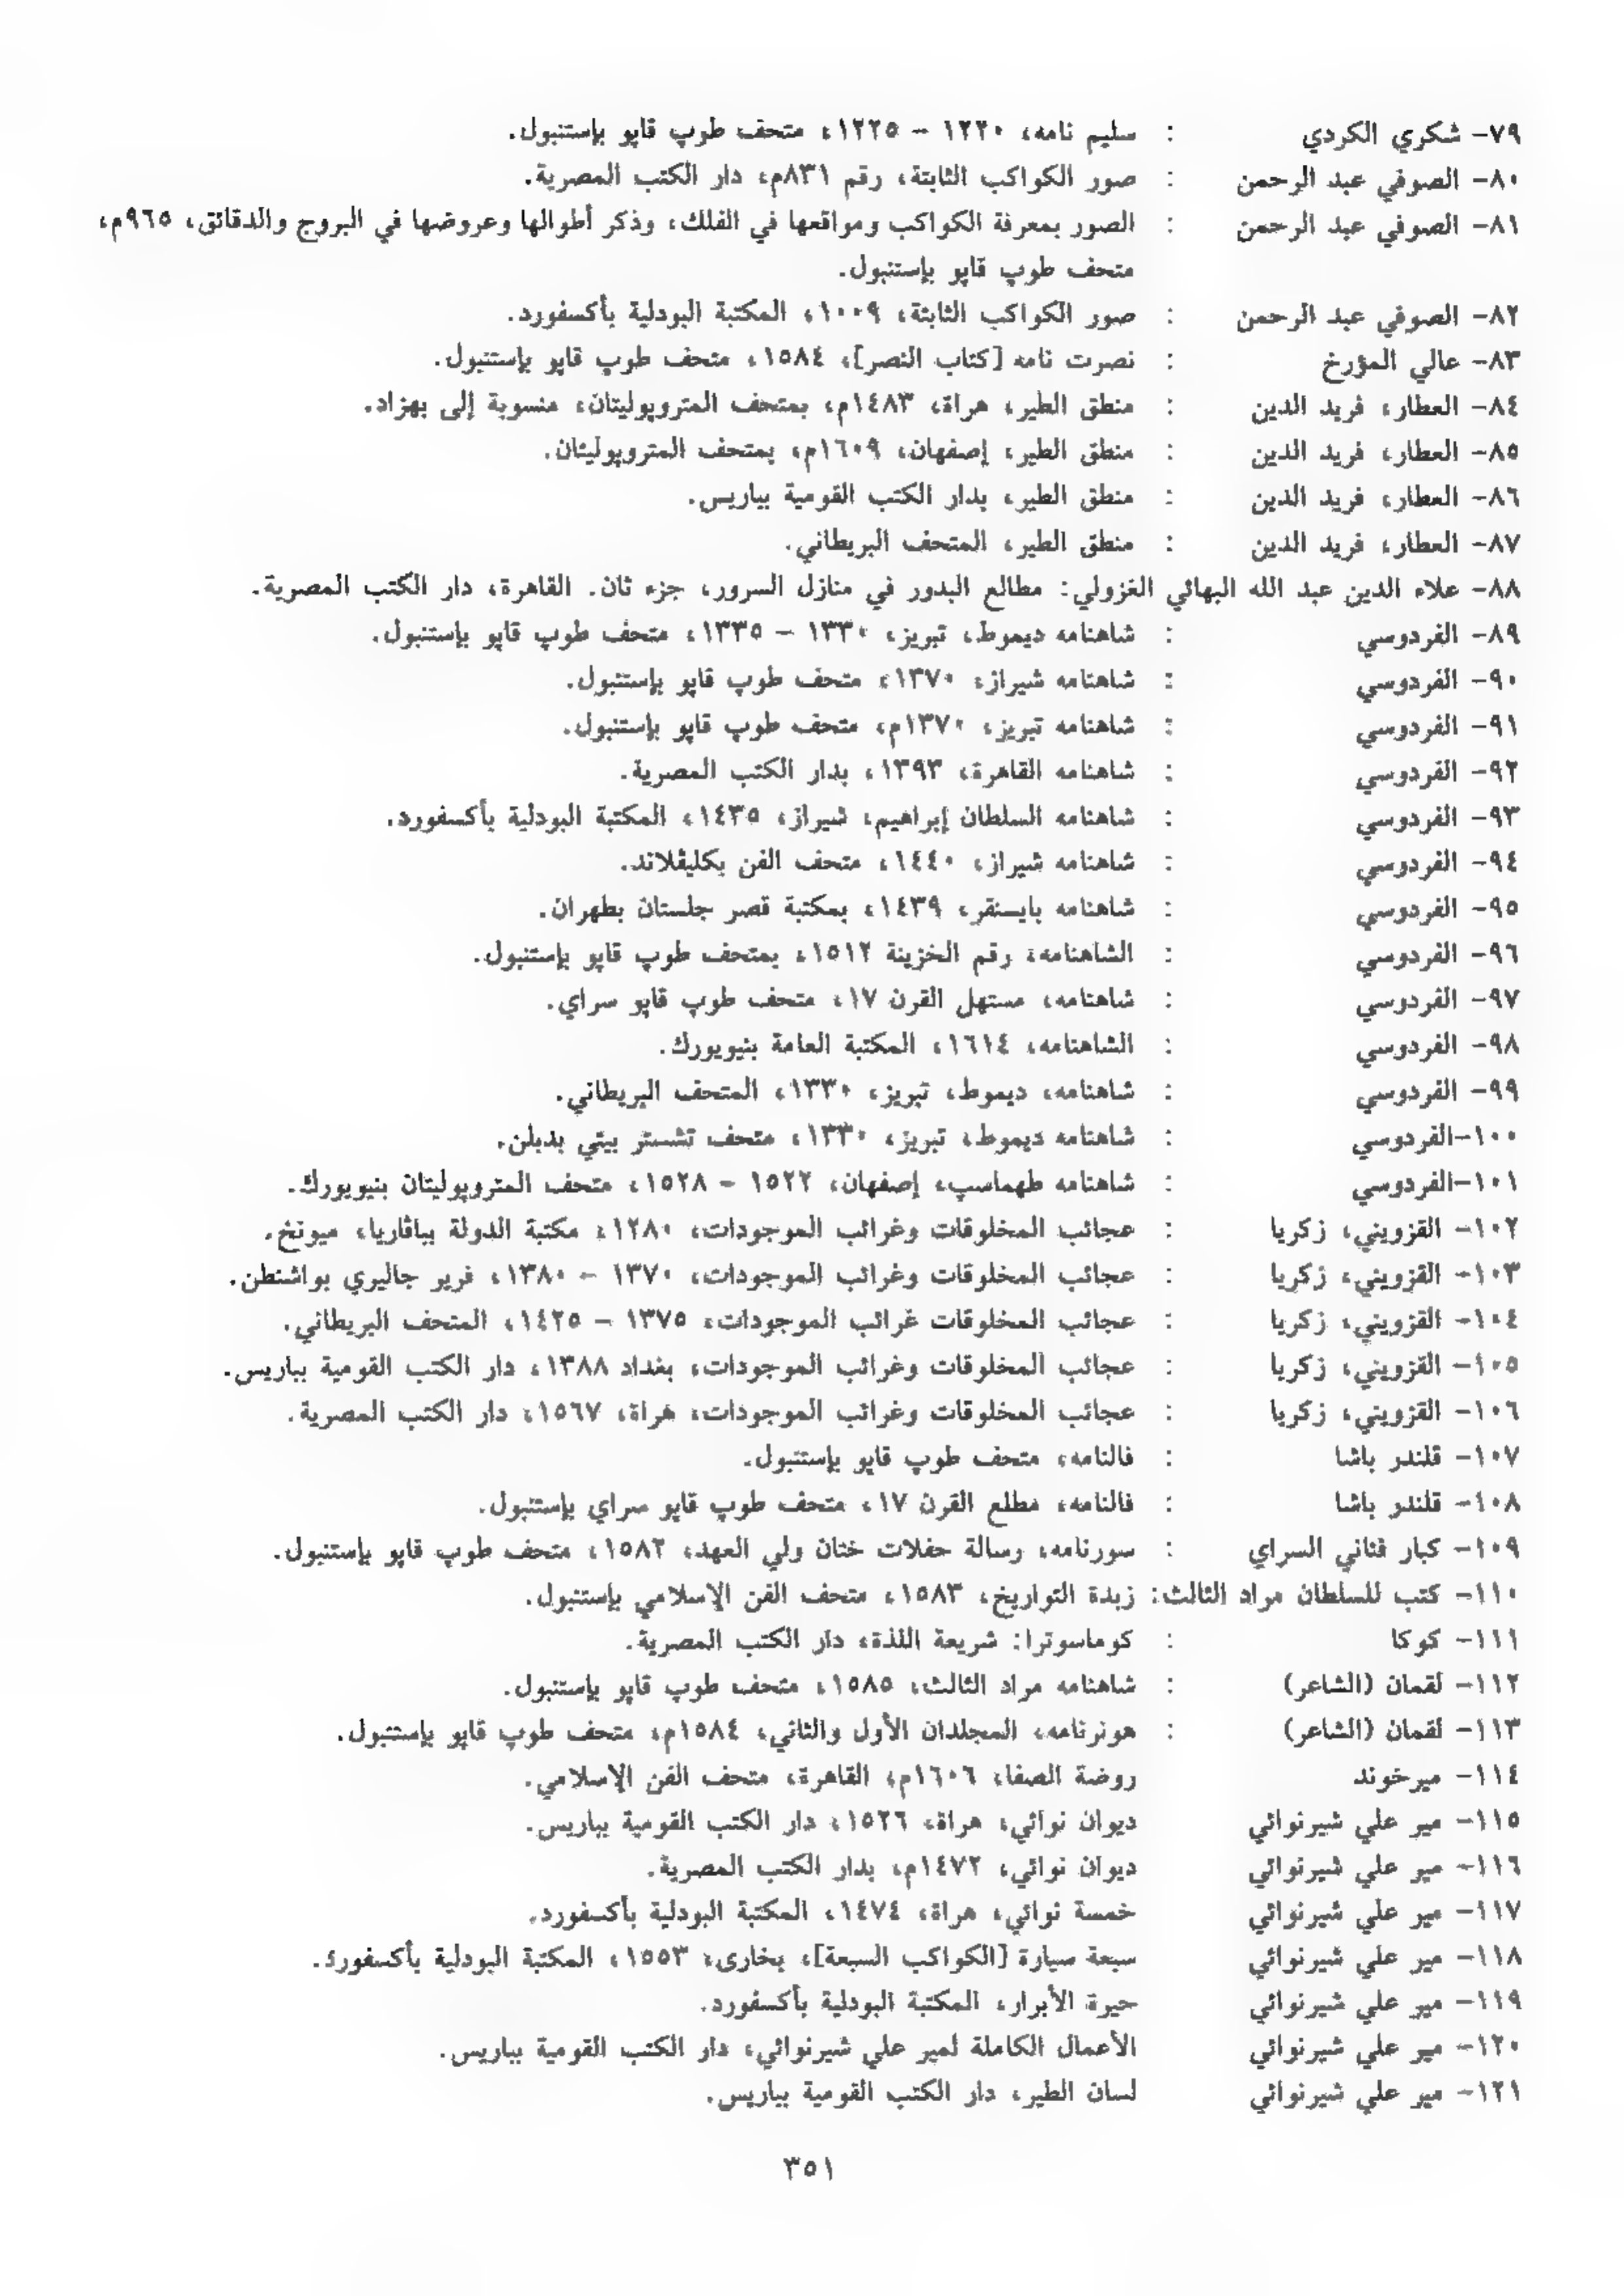 ٧٩- شكري الكردي : سليم نامه، ١٢٢٠ - ١٢٢٥، متحف طوپ قاپو بإستنبول.
٨٠- الصوفي عبد الرحمن : صور الكواكب الثابتة، رقم ٨٣١م، دار الكتب المصرية.
٨١- الصوفي عبد الرحمن : الصور بمعرفة الكواكب ومواقعها في الفلك، وذكر أطوالها وعروضها في البروج والدقائق، ٩٦٥م،
متحف طوپ قاپو بإستنبول.
٨٢- الصوفي عبد الرحمن : صور الكواكب الثابتة، ١٠٠٩، المكتبة البودلية بأكسفورد.
٨٣- عالي المؤرخ : نصرت نامه [كتاب النصر]، ١٥٨٤، متحف طوپ قاپو بإستنبول.
٨٤- العطار، فريد الدين : منطق الطير، هراة، ١٤٨٣م، بمتحف المتروپوليتان، منسوبة إلى بهزاد.
٨٥- العطار، فريد الدين : منطق الطير، إصفهان، ١٦٠٩م، بمتحف المتروپوليتان.
٨٦- العطار، فريد الدين : منطق الطير، بدار الكتب القومية بباريس.
٨٧- العطار، فريد الدين : منطق الطير، المتحف البريطاني.
٨٨- علاء الدين عبد الله البهائي الغزولي: مطالع البدور في منازل السرور، جزء ثان. القاهرة، دار الكتب المصرية.
٨٩- الفردوسي : شاهنامه ديموط، تبريز، ١٣٣٠ - ١٣٣٥، متحف طوپ قاپو بإستنبول.
٩٠- الفردوسي : شاهنامه شيراز، ١٣٧٠، متحف طوپ قاپو بإستنبول.
٩١- الفردوسي : شاهنامه تبريز، ١٣٧٠م، متحف طوپ قاپو بإستنبول.
٩٢- الفردوسي : شاهنامه القاهرة، ١٣٩٣، بدار الكتب المصرية.
٩٣- الفردوسي : شاهنامه السلطان إبراهيم، شيراز، ١٤٣٥، المكتبة البودلية بأكسفورد.
٩٤- الفردوسي : شاهنامه شيراز، ١٤٤٠، متحف الفن بكليڤلاند.
٩٥- الفردوسي : شاهنامه بايسنقر، ١٤٣٩، بمكتبة قصر جلستان بطهران.
٩٦- الفردوسي : الشاهنامه، رقم الخزينة ١٥١٢، بمتحف طوپ قاپو بإستنبول.
٩٧- الفردوسي : شاهنامه، مستهل القرن ١٧، متحف طوپ قاپو سراي.
٩٨- الفردوسي : الشاهنامه، ١٦١٤، المكتبة العامة بنيويورك.
٩٩- الفردوسي : شاهنامه، ديموط، تبريز، ١٣٣٠، المتحف البريطاني.
١٠٠-الفردوسي : شاهنامه ديموط، تبريز، ١٣٣٠، متحف تشستر بيتي بدبلن.
١٠١-الفردوسي : شاهنامه طهماسپ، إصفهان، ١٥٢٢ - ١٥٢٨، متحف المتروپوليتان بنيويورك.
١٠٢- القزويني، زكريا : عجائب المخلوقات وغرائب الموجودات، ١٢٨٠، مكتبة الدولة بباڤاريا، ميونخ.
١٠٣- القزويني، زكريا : عجائب المخلوقات وغرائب الموجودات، ١٣٧٠ - ١٣٨٠، فرير جاليري بواشنطن.
١٠٤- القزويني، زكريا : عجائب المخلوقات غرائب الموجودات، ١٣٧٥ - ١٤٢٥، المتحف البريطاني.
١٠٥- القزويني، زكريا : عجائب المخلوقات وغرائب الموجودات، بغداد ١٣٨٨، دار الكتب القومية بباريس.
١٠٦- القزويني، زكريا : عجائب المخلوقات وغرائب الموجودات، هراة، ١٥٦٧، دار الكتب المصرية.
١٠٧- قلندر باشا : فالنامه، متحف طوپ قاپو بإستنبول.
١٠٨- قلندر باشا : فالنامه، مطلع القرن ١٧، متحف طوپ قاپو سراي بإستنبول.
١٠٩- كبار فناني السراي : سورنامه، رسالة حفلات ختان ولي العهد، ١٥٨٢، متحف طوپ قاپو بإستنبول.
١١٠- كتب للسلطان مراد الثالث: زبدة التواريخ، ١٥٨٣، متحف الفن الإسلامي بإستنبول.
١١١- كوكا : كوماسوترا: شريعة اللذة، دار الكتب المصرية.
١١٢- لقمان (الشاعر) : شاهنامه مراد الثالث، ١٥٨٥، متحف طوپ قاپو بإستنبول.
١١٣- لقمان (الشاعر) : هونرنامه، المجلدان الأول والثاني، ١٥٨٤م، متحف طوپ قاپو بإستنبول.
١١٤- ميرخوند روضة الصفا، ١٦٠٦م، القاهرة، متحف الفن الإسلامي.
١١٥- مير علي شيرنوائي ديوان نوائي، هراة، ١٥٢٦، دار الكتب القومية بباريس.
١١٦- مير علي شيرنوائي ديوان نوائي، ١٤٧٢م، بدار الكتب المصرية.
١١٧- مير علي شيرنوائي خمسة نوائي، هراة، ١٤٧٤، المكتبة البودلية بأكسفورد.
١١٨- مير علي شيرنوائي سبعة سيارة [الكواكب السبعة]، بخارى، ١٥٥٣، المكتبة البودلية بأكسفورد.
١١٩- مير علي شيرنوائي حيرة الأبرار، المكتبة البودلية بأكسفورد.
١٢٠- مير علي شيرنوائي الأعمال الكاملة لمير علي شيرنوائي، دار الكتب القومية بباريس.
١٢١- مير علي شيرنوائي لسان الطير، دار الكتب القومية بباريس.
٣٥١